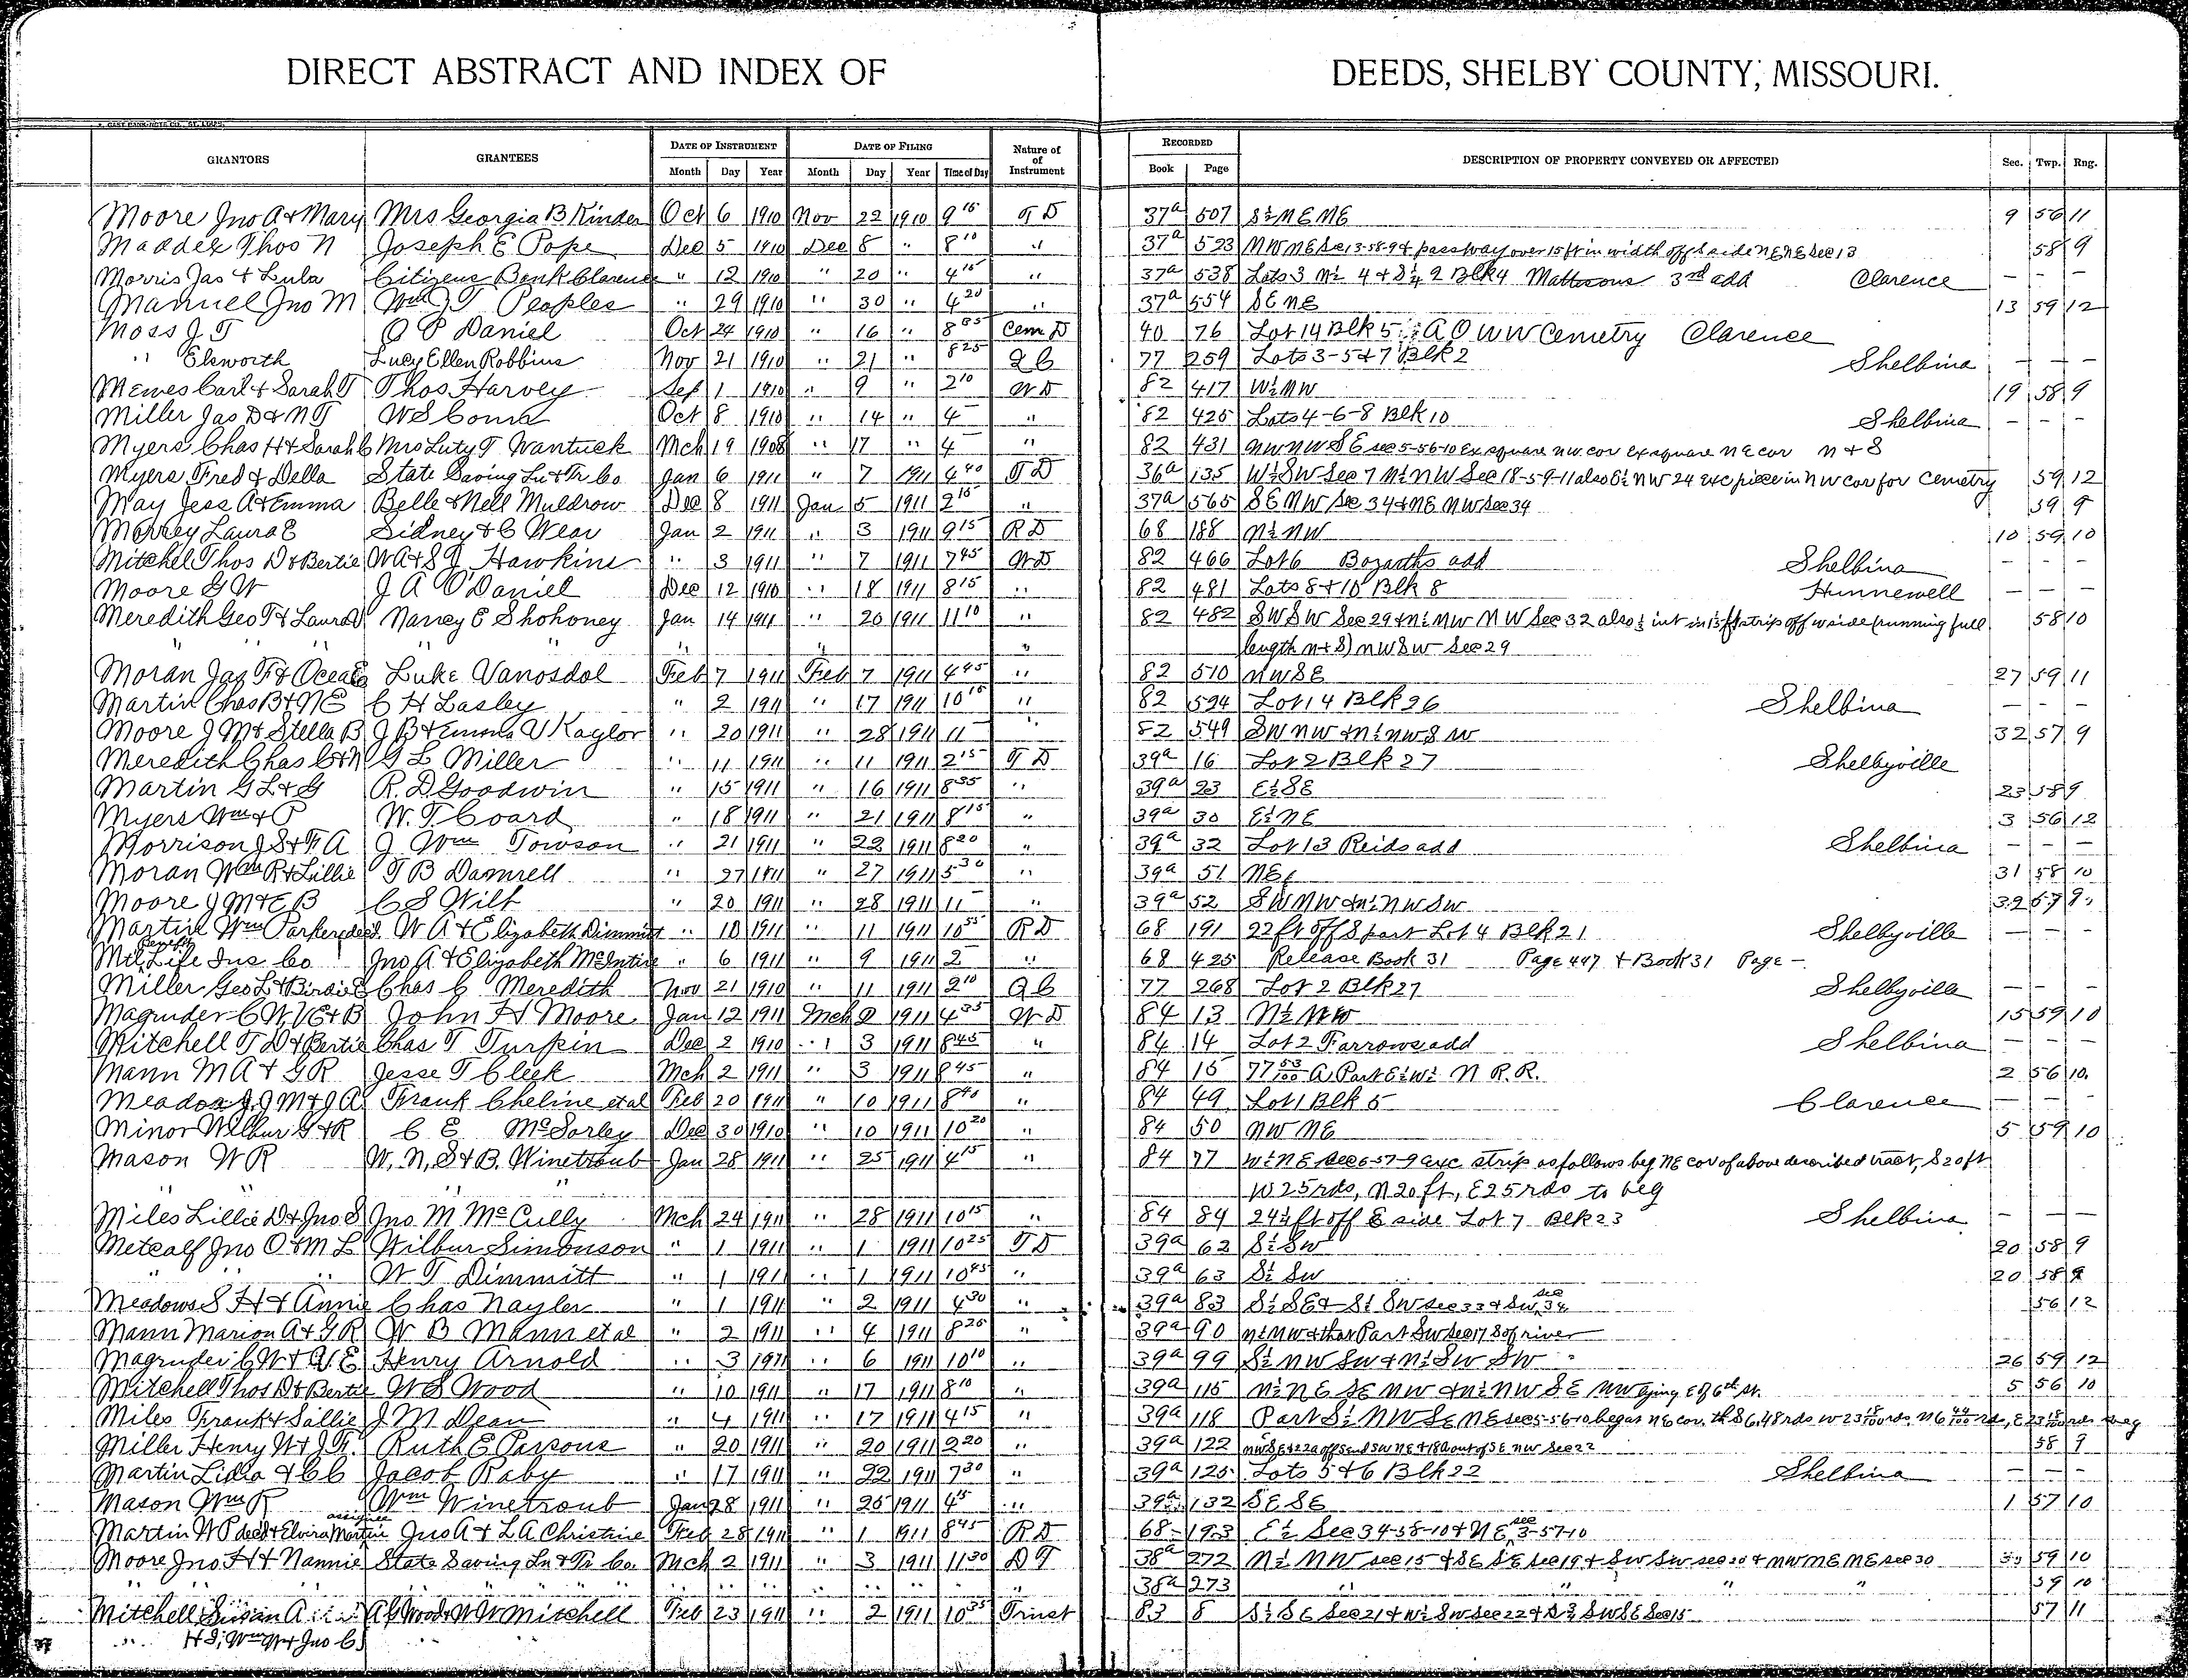 DIRECT ABSTRACT AND INDEX OF DEEDS, SHELBY COUNTY, MISSOURI.
GRANTORS GRANTEES DATE OF INSTRUMENT DATE OF FILING Nature of Instrument RECORDED DESCRIPTION OF PROPERTY CONVEYED OR AFFECTED Sec. Twp. Rng.
Month Day Year Month Day Year Time of Day Book Page
Moore Jno A & Mary Mrs Georgia B Kinder Oct 6 1910 Nov 22 1910 9 15 T D 37a 507 S½ NE NE 9 56 11
Maddex Thos N Joseph E Pope Dec 5 1910 Dec 8 " 8 10 " 37a 523 NW NE Sec 13-58-9 & passway over 15 ft in width off S side NE NE Sec 13 58 9
Morris Jas & Lula Citizens Bank Clarence " 12 1910 " 20 " 4 15 " 37a 538 Lots 3 N½ 4 & S¼ 2 Blk 4 Mattsons 3rd add Clarence - - -
Manuel Jno M Wm J T Peoples " 29 1910 " 30 " 4 20 " 37a 554 SE NE 13 59 12
Moss J T O P Daniel Oct 24 1910 " 16 " 8 35 Cem D 40 76 Lot 14 Blk 5 A O W W Cemetry Clarence
" Elsworth Lucy Ellen Robbins Nov 21 1910 " 21 " 8 25 Q C 77 259 Lots 3-5 & 7 Blk 2 Shelbina - - -
Mewes Carl & Sarah T Thos Harvey Sep 1 1910 " 9 " 2 10 W D 82 417 W½ NW 19 58 9
Miller Jas D & N T W S Comb Oct 8 1910 " 14 " 4 - " 82 425 Lots 4-6-8 Blk 10 Shelbina - - -
Myers Chas H & Sarah C Mrs Luty T Wantuck Mch 19 1908 " 17 " 4 - " 82 431 NW NW SE sec 5-56-10 Ex square NW cor Ex square NE cor N & S
Myers Fred & Della State Saving Ln & Tr Co Jan 6 1911 " 7 1911 4 40 T D 36a 135 W½ SW Sec 7 N½ NW Sec 18-59-11 also E½ NW 24 exc piece in NW cor for Cemetry 59 12
May Jess A & Emma Belle & Nell Muldrow Dec 8 1911 Jan 5 1911 2 15 " 37a 565 SE NW Sec 34 & NE NW Sec 34 59 9
Morrey Laura E Sidney & C Wear Jan 2 1911 " 3 1911 9 15 R D 68 188 N½ NW 10 59 10
Mitchel Thos D & Bertie W A & S J Hawkins " 3 1911 " 7 1911 7 45 W D 82 466 Lot 6 Bozarths add Shelbina - - -
Moore G W J A O'Daniel Dec 12 1910 " 18 1911 8 15 " 82 481 Lots 8 & 10 Blk 8 Hunnewell - - -
Meredith Geo T & Laura Nancy E Shohoney Jan 14 1911 " 20 1911 11 10 " 82 482 SW SW Sec 29 & N½ NW NW Sec 32 also ½ int in 1½ ft strip off W side (running full 58 10
" " " " " " " length N & S) NW SW Sec 29
Moran Jas F & Ocea E Luke Vanosdol Feb 7 1911 Feb 7 1911 4 45 " 82 510 NW SE 27 59 11
Martin Chas B & N E C H Lasley " 2 1911 " 17 1911 10 15 " 82 524 Lot 14 Blk 26 Shelbina - - -
Moore J M & Stella B J B & Emma V Kaylor " 20 1911 " 28 1911 11 - " 82 549 SW NW & N½ NW SW 32 57 9
Meredith Chas C & N G L Miller " 11 1911 " 11 1911 2 15 T D 39a 16 Lot 2 Blk 27 Shelbyville
Martin G L & G R. D Goodwin " 15 1911 " 16 1911 8 35 " 39a 23 E½ SE 23 58 9
Myers Wm & P W. T. Coard " 18 1911 " 21 1911 8 15 " 39a 30 E½ NE 3 56 12
Morrison J S & F A J Wm Towson " 21 1911 " 22 1911 8 20 " 39a 32 Lot 13 Reids add Shelbina - - -
Moran Wm R & Lillie T B Damrell " 27 1911 " 27 1911 5 30 " 39a 51 NE¼ 31 58 10
Moore J M & E B C S Wilt " 20 1911 " 28 1911 11 - " 39a 52 SW NW & N½ NW SW 32 57 9
Martin Wm Parker decd W A & Elizabeth Dimmitt " 10 1911 " 11 1911 10 55 R D 68 191 22 ft off S part Lot 4 Blk 21 Shelbyville - - -
Mil Benefit Life Ins Co Jno A & Elizabeth McIntire " 6 1911 " 9 1911 2 - " 68 425 Release Book 31 Page 447 & Book 31 Page -
Miller Geo L & Birdie E Chas C Meredith Nov 21 1910 " 11 1911 2 10 Q C 77 268 Lot 2 Blk 27 Shelbyville - - -
Magruder C W, V E & B John H Moore Jan 12 1911 Mch 2 1911 4 35 W D 84 13 N½ NW 15 59 10
Mitchell T D & Bertie Chas T Turpin Dec 2 1910 " 3 1911 8 45 " 84 14 Lot 2 Farrows add Shelbina - - -
Mann M A & G R Jesse T Cleek Mch 2 1911 " 3 1911 8 45 " 84 15 77 53/100 A Part E½ W½ N R.R. 2 56 10
Meadox J J M & J A Frank Cheline et al Feb 20 1911 " 10 1911 8 40 " 84 49 Lot 1 Blk 5 Clarence - - -
Minor Wilbur G & R C E McSorley Dec 30 1910 " 10 1911 10 20 " 84 50 NW NE 5 59 10
Mason W R W. N, S & B. Winetroub Jan 28 1911 " 25 1911 4 15 " 84 77 W½ NE Sec 6-57-9 exc strip as follows beg NE cor of above described tract, S 20 ft
" " " " W 25 rds, N 20 ft, E 25 rds to beg
Miles Lillie D & Jno S Jno M McCully Mch 24 1911 " 28 1911 10 15 " 84 84 24½ ft off E side Lot 7 Blk 23 Shelbina - - -
Metcalf Jno O & M L Wilbur Simonson " 1 1911 " 1 1911 10 25 T D 39a 62 S½ SW 20 58 9
" " W T Dimmitt " 1 1911 " 1 1911 10 45 " 39a 63 S½ SW 20 58 9
Meadows S H & Annie Chas Naylor " 1 1911 " 2 1911 4 30 " 39a 83 S½ SE & S½ SW sec 33 & SW sec 34 56 12
Mann Marion A & G R W B Mann et al " 2 1911 " 4 1911 8 25 " 39a 90 N½ NW & that Part SW Sec 17 S of river
Magruder C W & V. E Henry Arnold " 3 1911 " 6 1911 10 10 " 39a 99 S½ NW SW & N½ SW SW 26 59 12
Mitchell Thos D & Bertie W S Wood " 10 1911 " 17 1911 8 10 " 39a 115 N½ NE SE NW & N½ NW SE NW lying E of 6th St. 5 56 10
Miles Frank & Sallie J M Dean " 4 1911 " 17 1911 4 15 " 39a 118 Part S½ NW SE NE sec 5-56-10 began NE cor. th S 6.48 rds W 23 18/100 rds. N 6 44/100 rds, E 23 18/100 rds to beg
Miller Henry W & J F. Ruth E Parsons " 20 1911 " 20 1911 2 20 " 39a 122 NW SE & 22 a off S end SW NE & 18 a out of SE NW Sec 22 58 9
Martin Lidia & C C Jacob Raby " 17 1911 " 22 1911 7 30 " 39a 125 Lots 5 & 6 Blk 22 Shelbina - - -
Mason Wm R Wm Winetroub Jan 28 1911 " 25 1911 4 15 " 39a 132 SE SE 1 57 10
Martin W P decd & Elvira Martin assignee Jno A & L A Christine Feb 28 1911 " 1 1911 8 45 R D 68 193 E½ Sec 34-58-10 & NE sec 3-57-10
Moore Jno H & Nannie State Saving Ln & Tr Co. Mch 2 1911 " 3 1911 11 30 D T 38a 272 N½ NW sec 15 & SE SE Sec 19 & SW SW sec 20 & NW NE NE sec 30 59 10
" " " " " " " " " " 38a 273 " " " " 59 10
Mitchell Susan A A G Wood & W W Mitchell Feb 23 1911 " 2 1911 10 35 Trust 83 8 S½ SE Sec 21 & W½ SW sec 22 & SW SE Sec 15 57 11
" H S, Wm W & Jno C " "